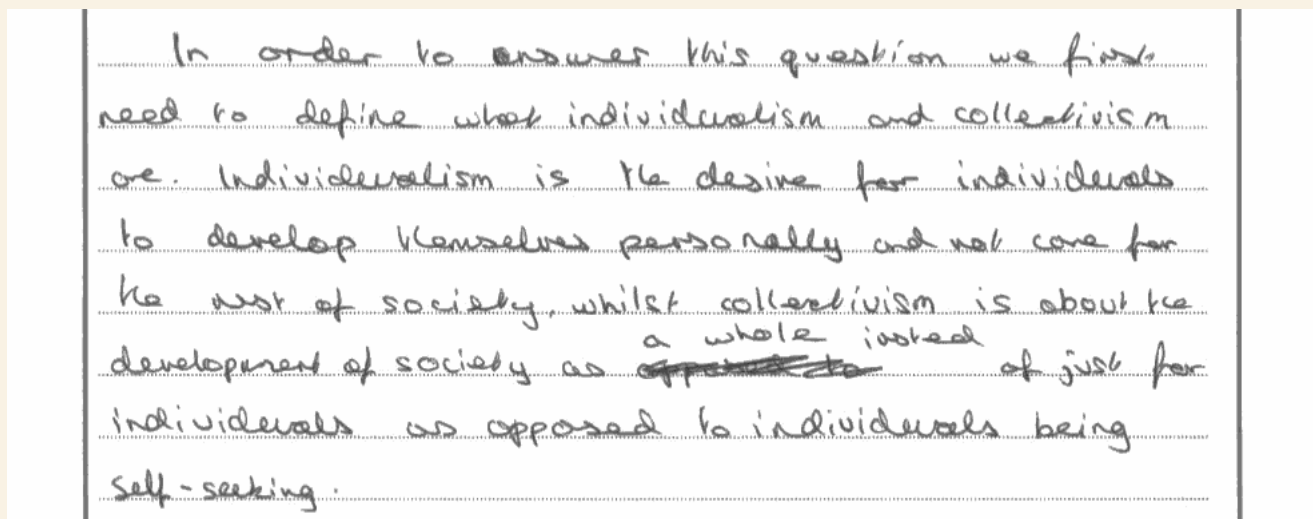 In order to answer this question we first
need to define what individualism and collectivism
are. Individualism is the desire for individuals
to develop themselves personally and not care for
the rest of society, whilst collectivism is about the
a whole instead
development of society as of just for
individuals as opposed to individuals being
self-seeking.